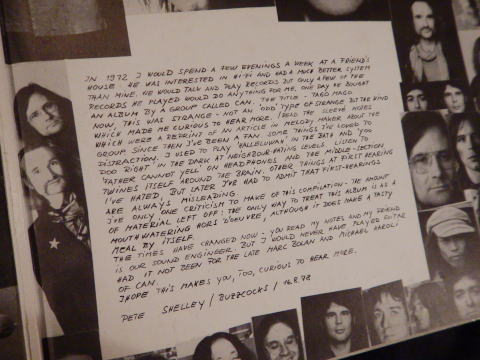 IN 1972 I WOULD SPEND A FEW EVENINGS A WEEK AT A FRIEND'S
HOUSE. HE WAS INTERESTED IN HI-FI AND HAD A MUCH BETTER SYSTEM
THAN MINE. WE WOULD TALK AND PLAY RECORDS BUT ONLY A FEW OF THE
RECORDS HE PLAYED WOULD DO ANYTHING FOR ME. ONE DAY HE BOUGHT
AN ALBUM BY A GROUP CALLED CAN. THE TITLE - TAGO MAGO.
NOW, THIS WAS STRANGE - NOT AN 'ODD' TYPE OF STRANGE BUT THE KIND
WHICH MADE ME CURIOUS TO HEAR MORE. I READ THE SLEEVE NOTES
WHICH WERE A REPRINT OF AN ARTICLE IN MELODY MAKER ABOUT THE
GROUP. SINCE THEN I'VE BEEN A FAN. SOME THINGS I'VE LOVED TO
DISTRACTION. I USED TO PLAY 'HALLELUWAH' IN THE BATH AND 'YOO
DOO RIGHT' IN THE DARK AT NEIGHBOUR-HATING LEVELS. LISTEN TO
'FATHER CANNOT YELL' ON HEADPHONES AND THE MIDDLE-SECTION
TWINES ITSELF AROUND THE BRAIN. OTHER THINGS AT FIRST HEARING
I'VE HATED, BUT LATER I'VE HAD TO ADMIT THAT FIRST-HEARINGS
ARE ALWAYS MISLEADING.
I'VE ONLY ONE CRITICISM TO MAKE OF THIS COMPILATION - THE AMOUNT
OF MATERIAL LEFT OFF! THE ONLY WAY TO TREAT THIS ALBUM IS AS A
MOUTHWATERING HORS D'OEUVRE, ALTHOUGH IT DOES MAKE A TASTY
MEAL BY ITSELF.
THE TIMES HAVE CHANGED NOW - YOU READ MY NOTES AND MY FRIEND
IS OUR SOUND ENGINEER. BUT I WOULD NEVER HAVE PLAYED GUITAR
HAD IT NOT BEEN FOR THE LATE MARC BOLAN AND MICHAEL KAROLI
OF CAN.
I HOPE THIS MAKES YOU, TOO, CURIOUS TO HEAR MORE.
PETE SHELLEY / BUZZCOCKS / 16.8.78